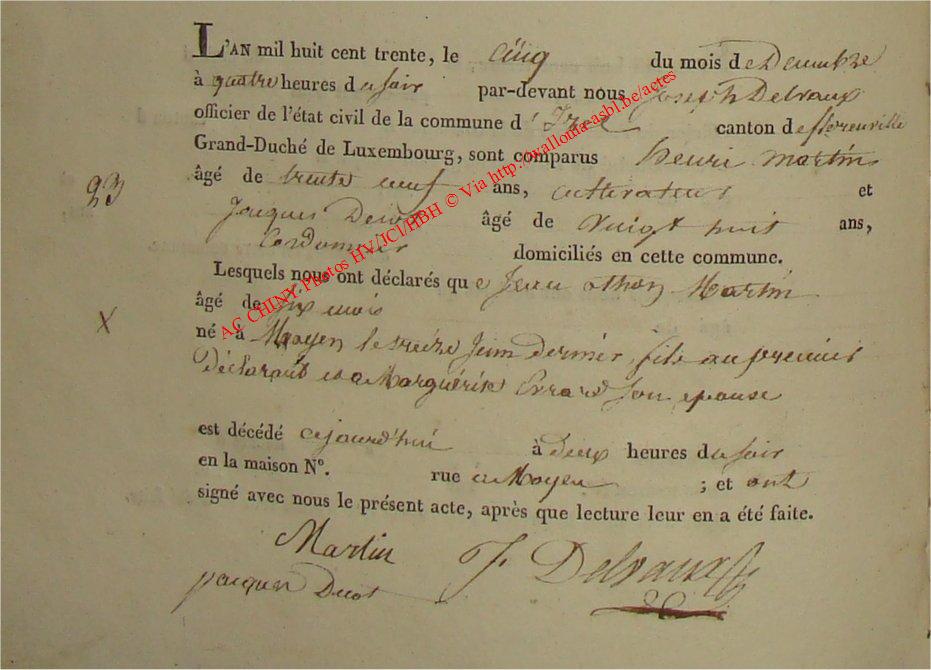 L'AN mil huit cent trente, le cinq du mois de Decembre
à quatre heures du soir par-devant nous Joseph Delvaux
officier de l'état civil de la commune d'Izel canton de florenville
Grand-Duché de Luxembourg, sont comparus henri martin
âgé de trente neuf ans, cultivateur et
23
Jacques Ducot âgé de vingt huit ans,
Cordonnier domiciliés en cette commune.
Lesquels nous ont déclarés que Jean Martin
âgé de six mois
X
né à Moyen le treize Juin dernier, fils au premier
déclarant et a Marguérite Errard son epouse
est décédé cejourd'hui à deux heures du soir
en la maison N°. rue a Moyen ; et ont
signé avec nous le présent acte, après que lecture leur en a été faite.
Martin J. Delvaux
jacques Ducot
AC CHINY Photos HV/JCl/HBH © Via http://wallonia-asbl.be/actes